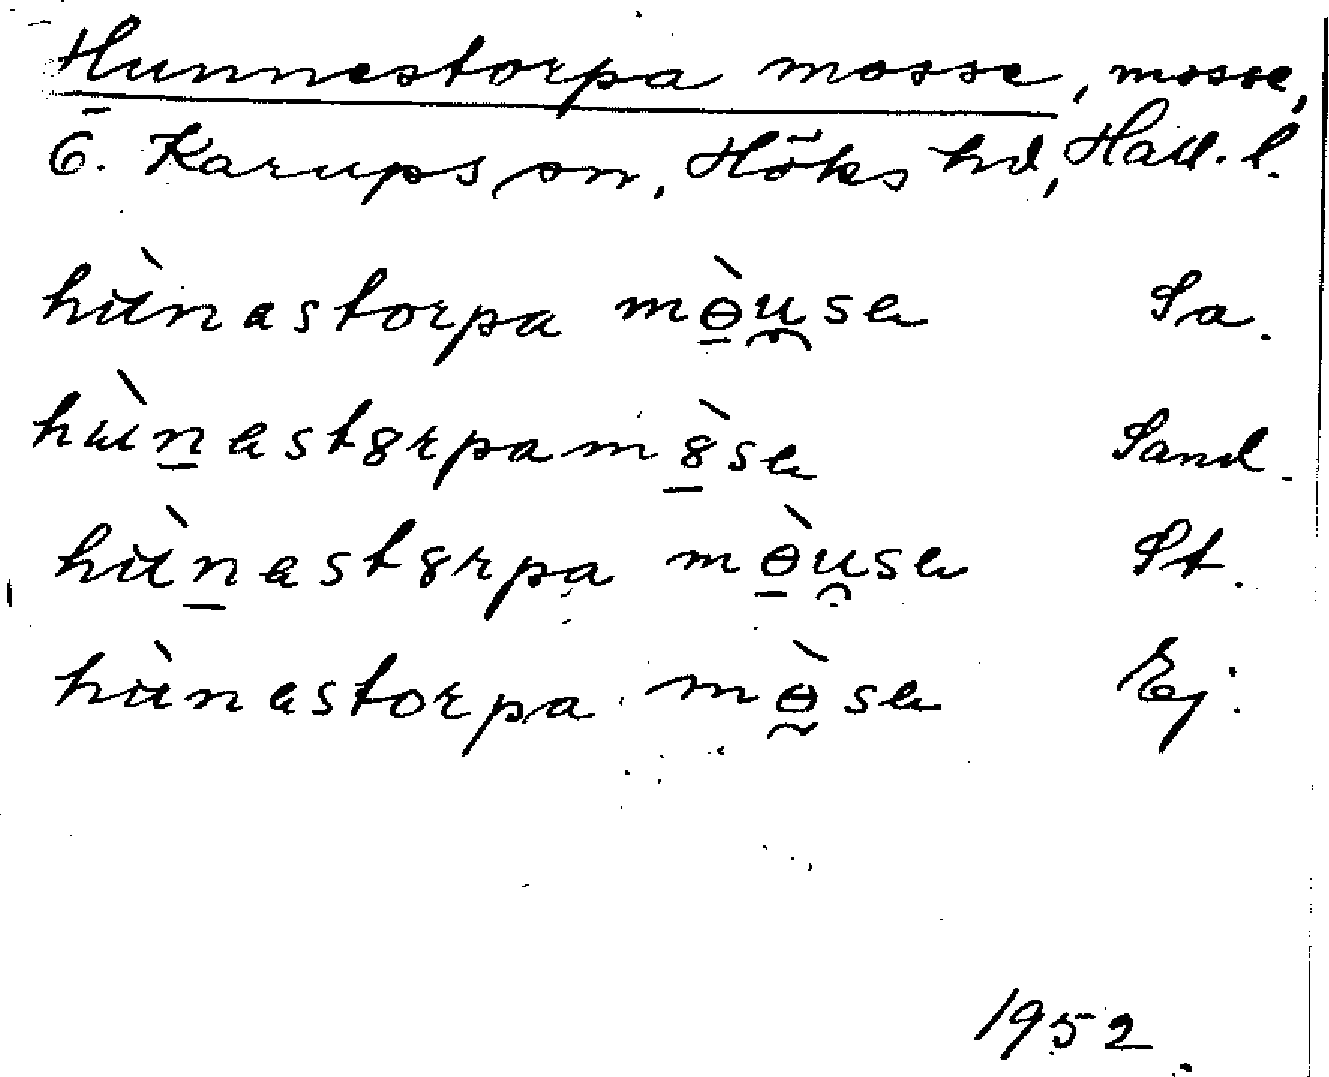 Hunnestorpa mosse, mosse,
Ö. Karups sn, Höks hd, Hall. l.
hùnastorpa mɵ̀u̯sa Sa.
hùn̲ast8rpam8̲̀sa Sand.
hùn̲ast8rpa mɵ̀u̯sa St.
hùnastorpa mɵ̀sa Ej.
1952.